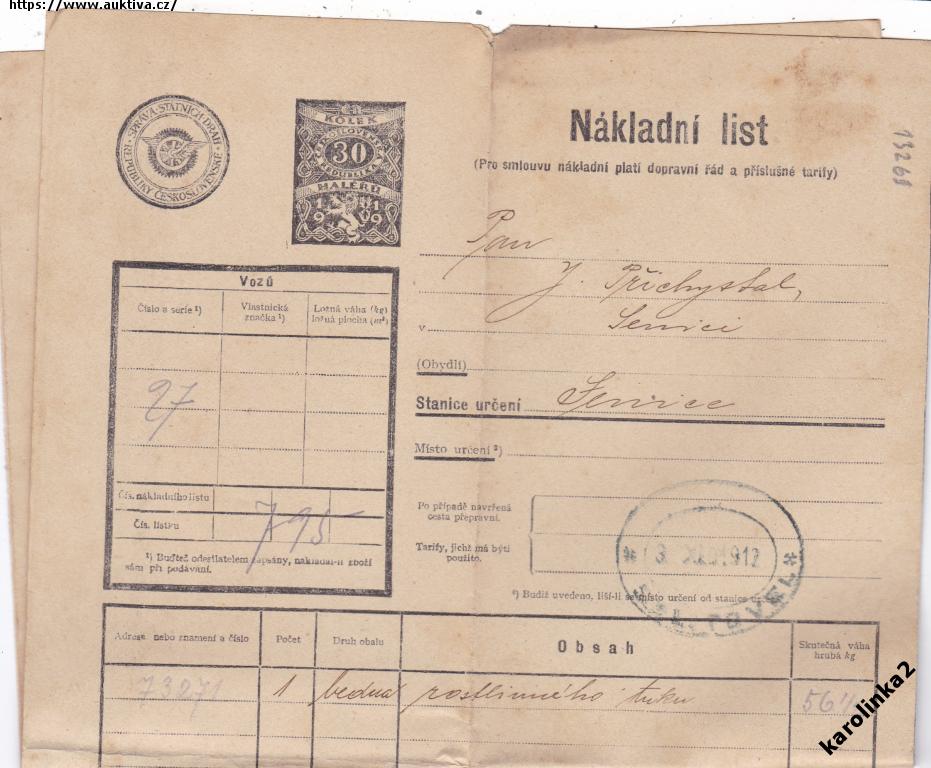 https://www.auktiva.cz/
SPRÁVA STÁTNÍCH DRAH
REPUBLIKY ČESKOSLOVENSKÉ
KOLEK
ČESKOSLOVENSKÁ
30
REPUBLIKA
HALÉŘŮ
1919
Nákladní list
(Pro smlouvu nákladní platí dopravní řád a příslušné tarify)
13261
Pan
J. Přichystal,
v Senici
(Obydlí)
Stanice určení Senice
Místo určení ²)
Po případě navržená
cesta přepravní.
Tarify, jichž má býti
použito.
²) Budiž uvedeno, liší-li se místo určení od stanice
Vozů
Číslo a serie ¹) Vlastnická značka ¹) Ložná váha (kg) ložná plocha (m²)
27
Čís. nákladního listu
Čís. lístku
795
¹) Buďtež odesílatelem zapsány, nakládá-li zboží
sám při podávání.
Adresa nebo znamení a číslo Počet Druh obalu Obsah Skutečná váha hrubá kg
73271 1 bedna rostlinného tuku 56
karolinka2